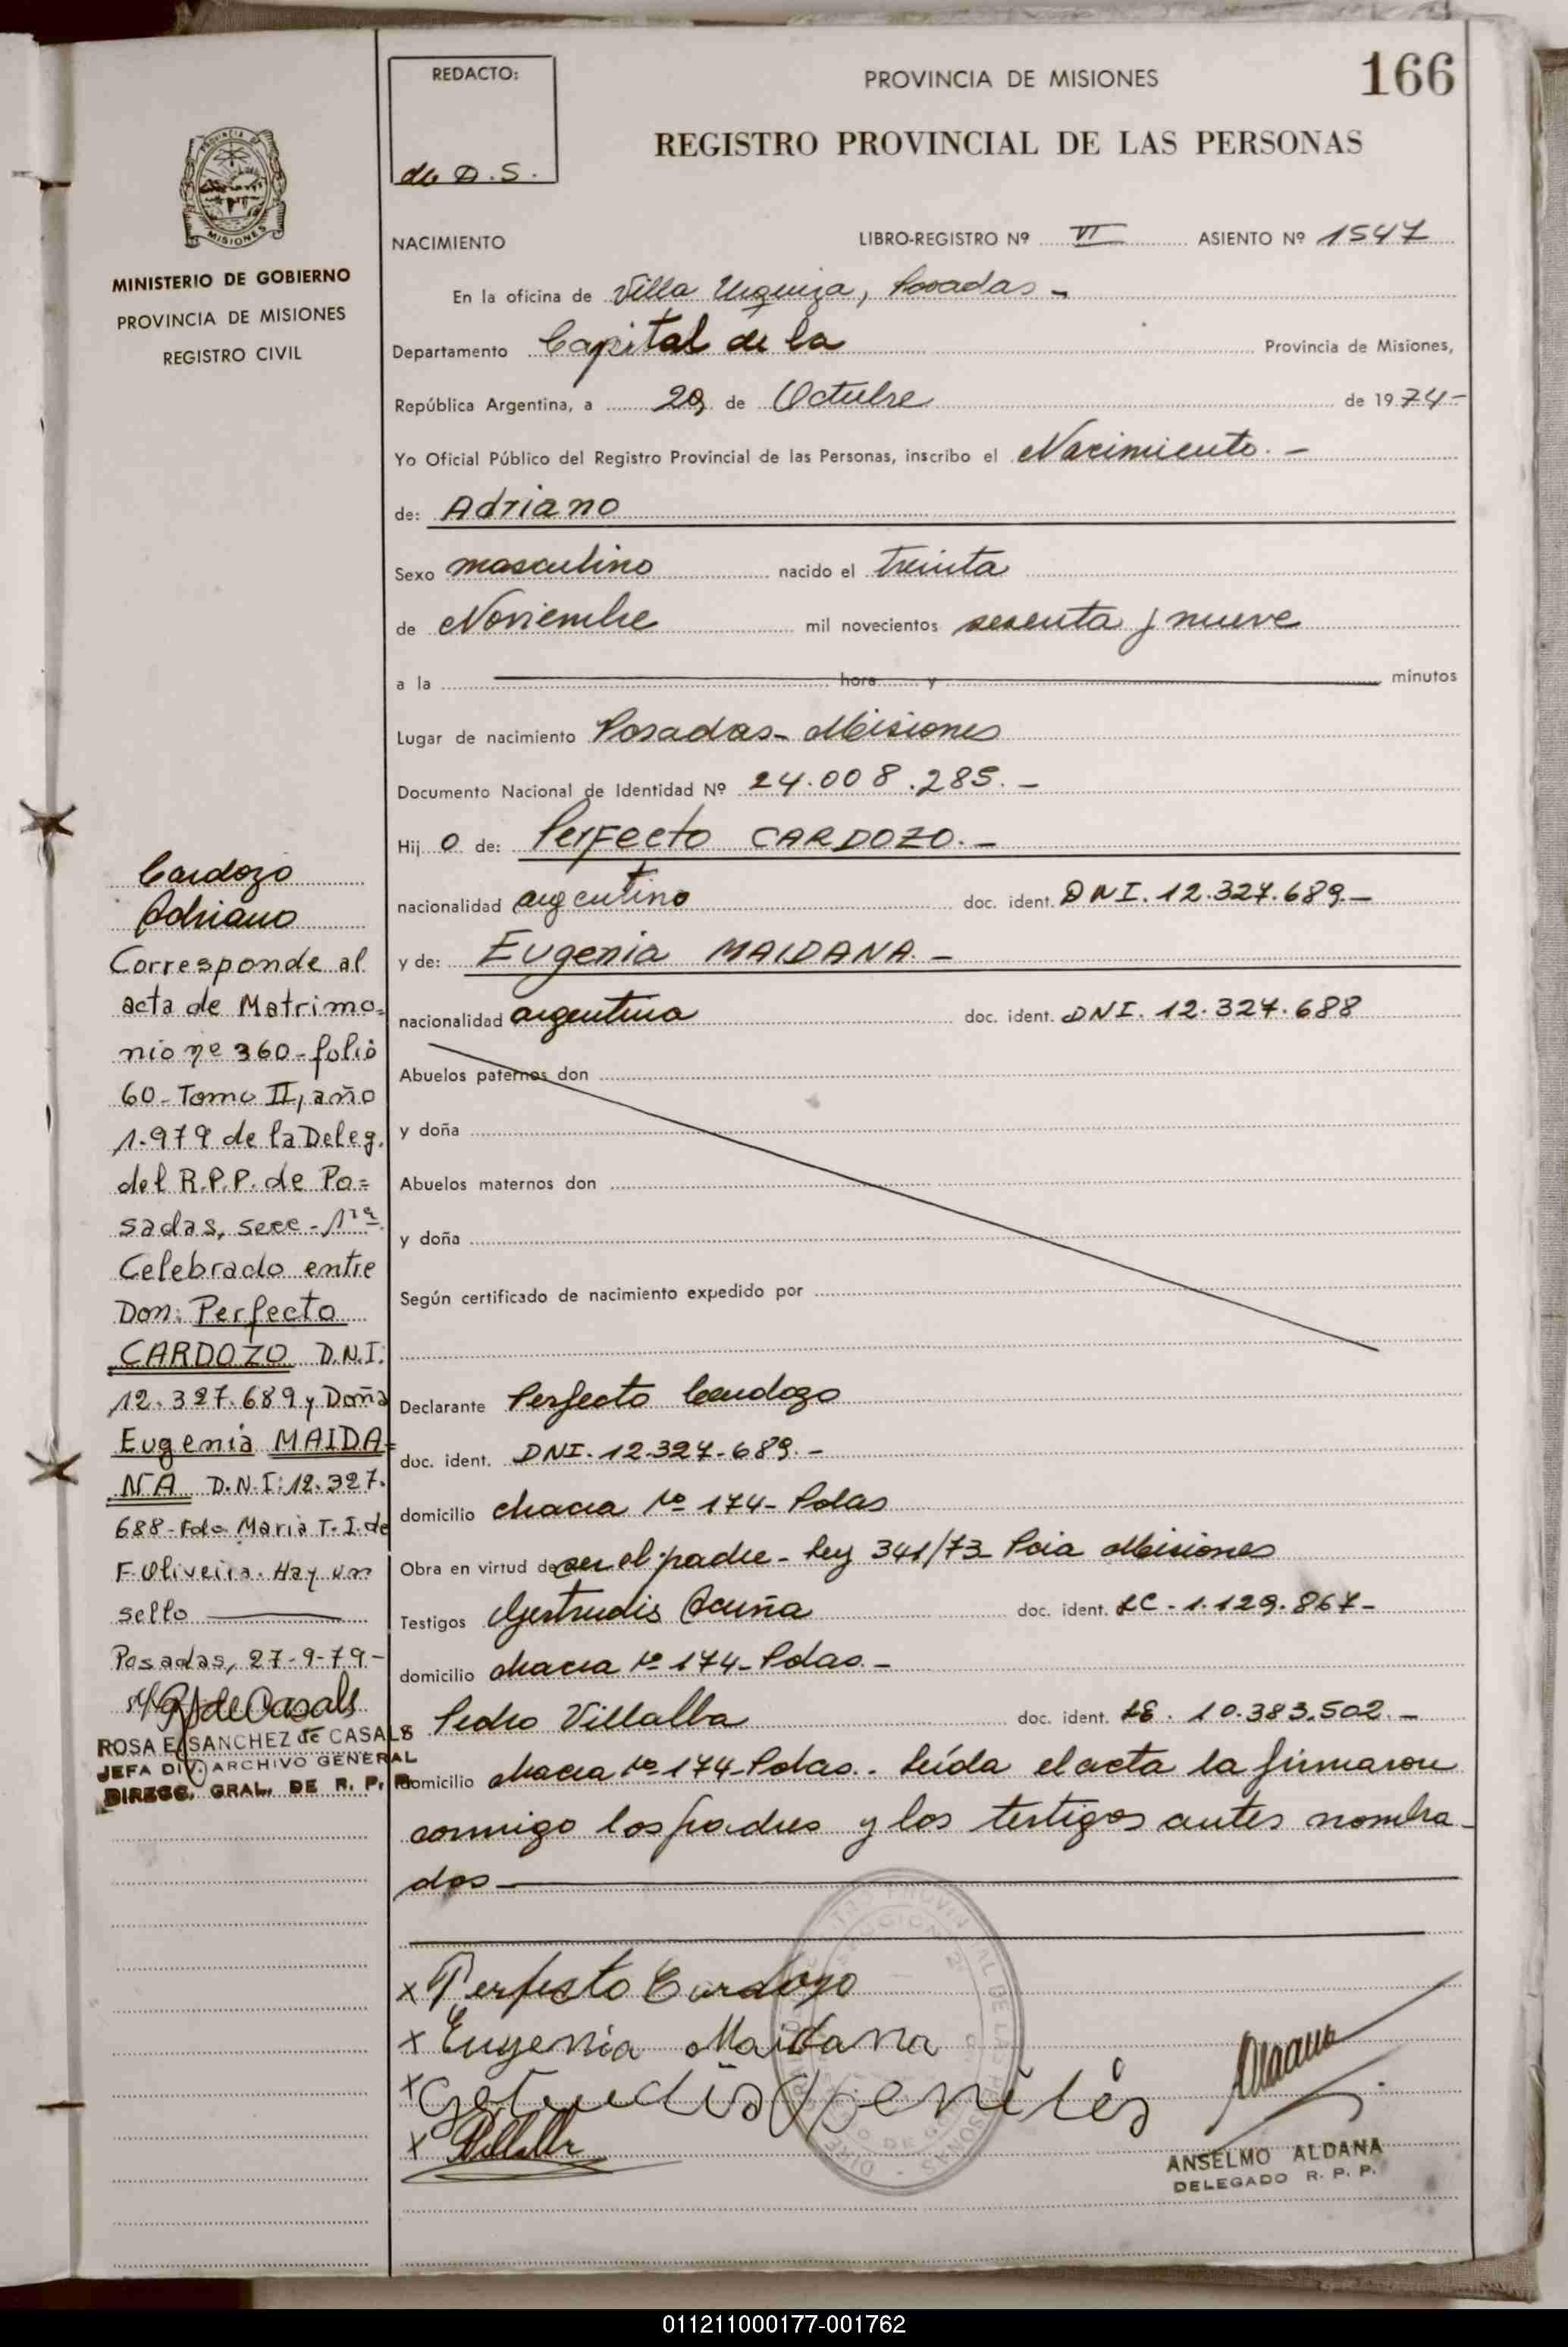 166
REDACTO:
de D.S.
PROVINCIA DE MISIONES
REGISTRO PROVINCIAL DE LAS PERSONAS
PROVINCIA DE
MISIONES
MINISTERIO DE GOBIERNO
PROVINCIA DE MISIONES
REGISTRO CIVIL
NACIMIENTO LIBRO-REGISTRO Nº VI ASIENTO Nº 1547
En la oficina de Villa Urquiza, Posadas -
Departamento Capital de la Provincia de Misiones,
República Argentina, a 29 de Octubre de 1974-
Yo Oficial Público del Registro Provincial de las Personas, inscribo el Nacimiento. -
de: Adriano
Sexo masculino nacido el treinta
de Noviembre mil novecientos sesenta y nueve
a la hora y minutos
Lugar de nacimiento Posadas - Misiones
Documento Nacional de Identidad Nº 24.008.285. -
Hij o de: Perfecto CARDOZO. -
nacionalidad argentino doc. ident. DNI. 12.327.689. -
y de: Eugenia MAIDANA. -
nacionalidad argentina doc. ident. DNI. 12.327.688
Abuelos paternos don
y doña
Abuelos maternos don
y doña
Según certificado de nacimiento expedido por
Declarante Perfecto Cardozo
doc. ident. DNI. 12.327.689. -
domicilio chacra Nº 174 - Pdas
Obra en virtud de ser el padre - Ley 341/73 Pcia Misiones
Testigos Gertrudis Acuña doc. ident. LC - 1.129.867 -
domicilio chacra Nº 174 - Pdas. -
Pedro Villalba doc. ident. LE. 10.383.502. -
domicilio chacra Nº 174 - Pdas. - Leída el acta la firmaron
conmigo los padres y los testigos antes nombra-
dos -
x Perfecto Cardozo
x Eugenia Maidana
x
x
ANSELMO ALDANA
DELEGADO R. P. P.
Cardozo
Adriano
Corresponde al
acta de Matrimo=
nio nº 360 - folio
60 - Tomo II, año
1.979 de la Deleg.
del R.P.P. de Po=
sadas, secc - 1ra
Celebrado entre
Don: Perfecto
CARDOZO D.N.I.
12.327.689 y Doña
Eugenia MAIDA=
NA D.N.I: 12.327.
688 - Fdo María T. I. de
F. Oliveira. Hay un
sello
Posadas, 27-9-79 -
ROSA E. SANCHEZ de CASALS
JEFA DIV. ARCHIVO GENERAL
DIRECC. GRAL. DE R. P. P.
011211000177-001762